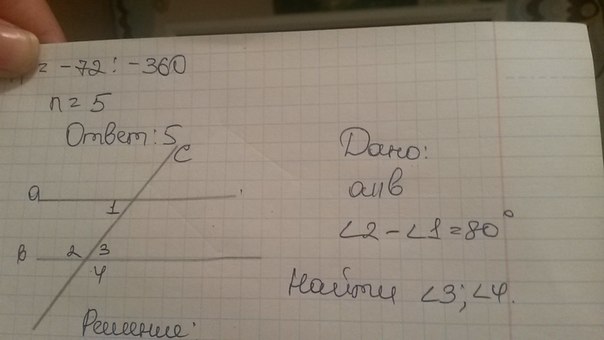 = -72 : -360
n = 5
Ответ: 5
c
a
1
в
2 3
4
Дано:
a ıı в
∠2 - ∠1 = 80°
Найти ∠3; ∠4.
Решение: